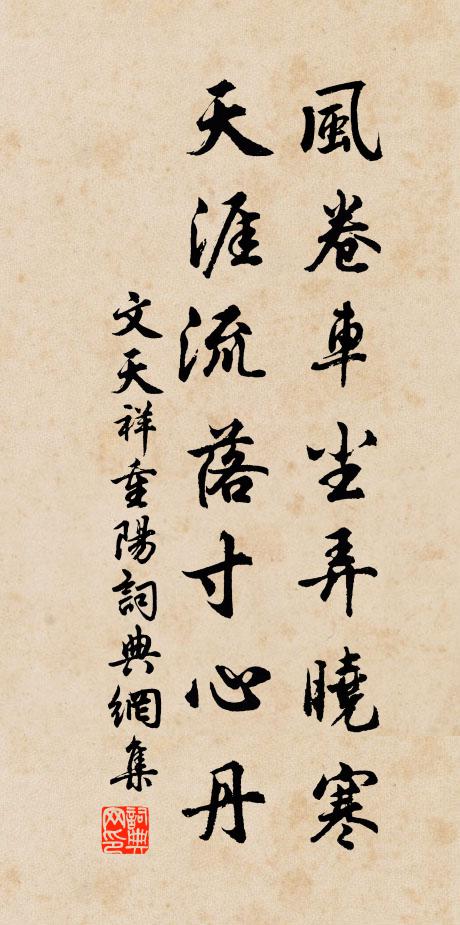 風卷車尘弄曉寒
天涯流落寸心丹
文天祥重陽詞典網集
詞典網印